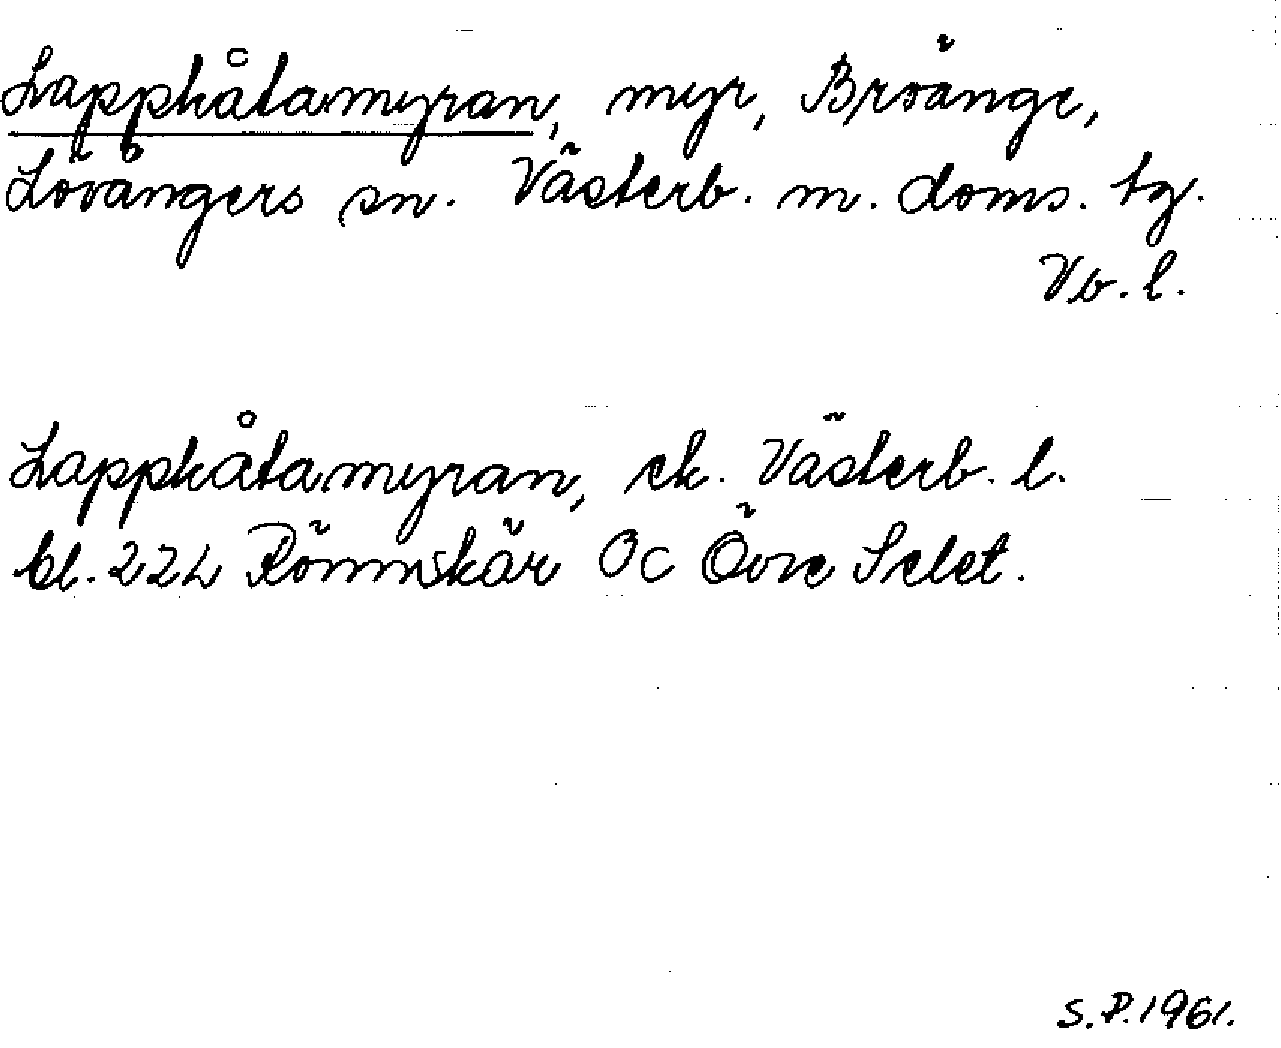 Lappkåtamyran, myr, Broänge,
Lövångers sn. Västerb. m. doms. tg.
Vb. l.
Lappkåtamyran, ek. Västerb. l.
bl. 22L Rönnskär Oc Övre Selet.
S.P. 1961.